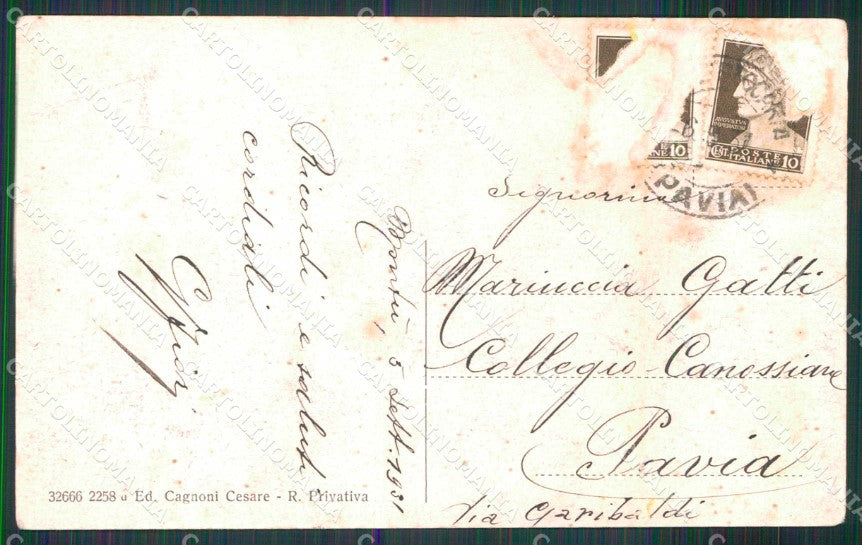 Ricordi e saluti
cordiali
5 Sett. 1931
Signorina
Marinuccia Gatti
Collegio Canossiane
Pavia
Via Garibaldi
32666 2258 Ed. Cagnoni Cesare - R. Privativa
AVGVSTVS
IMPERATOR
POSTE
ITALIANE 10
NE 10
(PAVIA)
CARTOLINOMANIA